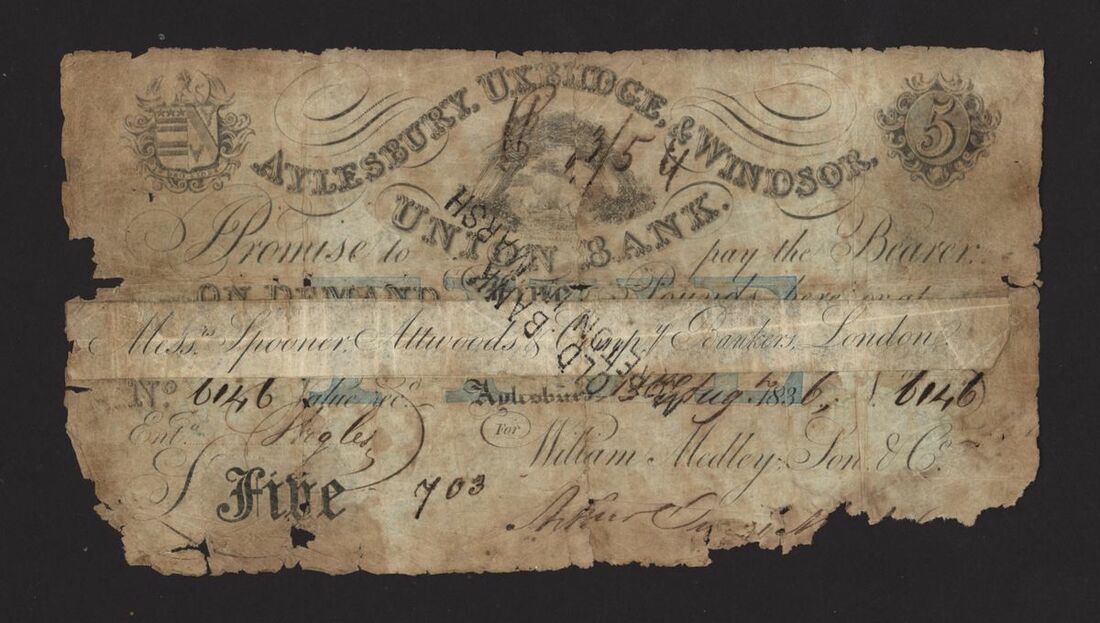 AYLESBURY, UXBRIDGE, & WINDSOR.
5
UNION BANK.
I Promise to pay the Bearer
ON DEMAND FIVE Pounds here or at
Messrs. Spooner, Attwoods & Compy. Bankers, London,
No. 6146 Value recd. Aylesbury Aug 1836, No. 6146
For William Medley, Son, & Co.
Entd.
Five
703
OLD BANK
MORETON IN MARSH